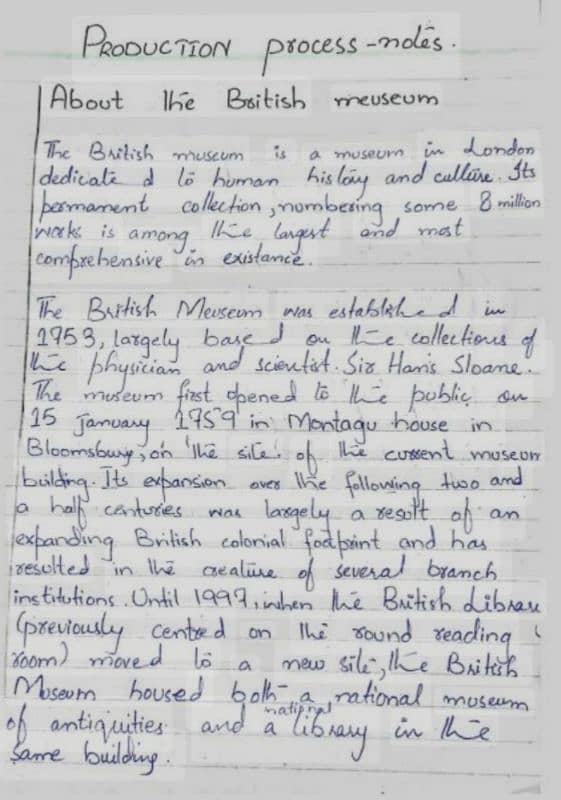 PRODUCTION process-notes.
About the British meuseum
The British museum is a museum in London
dedicate d to human histoy and culture. Its
permament collection, numbering some 8 million
works is among the largest and most
comprehensive in existance.
The British Meuseum was establishe d in
1753, largely base d on the collections of
the physician and scientist. Sir Hans Sloane.
The museum first opened to the public on
15 January 1759 in Montagu house in
Bloomsbury, on the site of the current museum
building. Its expansion over the following two and
a half centuries was largely a result of an
expanding British colonial footprint and has
resulted in the creature of several branch
institutions. Until 1997, when the British Library
(previously centred on the round reading
room) moved to a new site, the British
Museum housed both a national museum
of antiquities and a national library in the
same building.